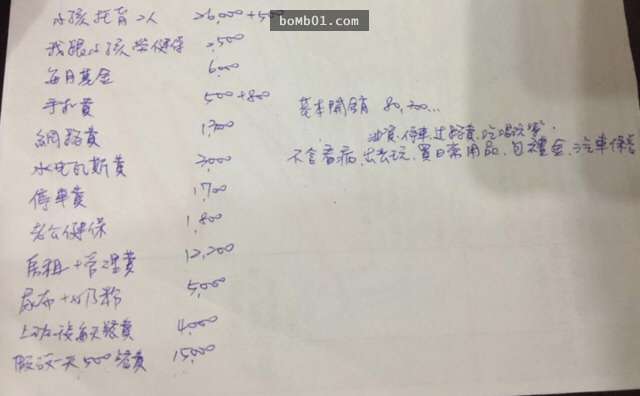 boMb01.com
小孩托育2人 26,000+500
我跟小孩勞健保 2,500
每月基金 6,000
手机費 500+800
基本開銷 80,200...
網路費 1,300
油資、停車、过路費、吃喝玩樂
不含看病、出去玩、買日常用品、包禮金、汽車保
水电瓦斯費 3,000
停車費 1,700
老公健保 1,800
房租+管理費 12,200
尿布+奶粉 5,000
上班 4,000
假設一天500 15,000